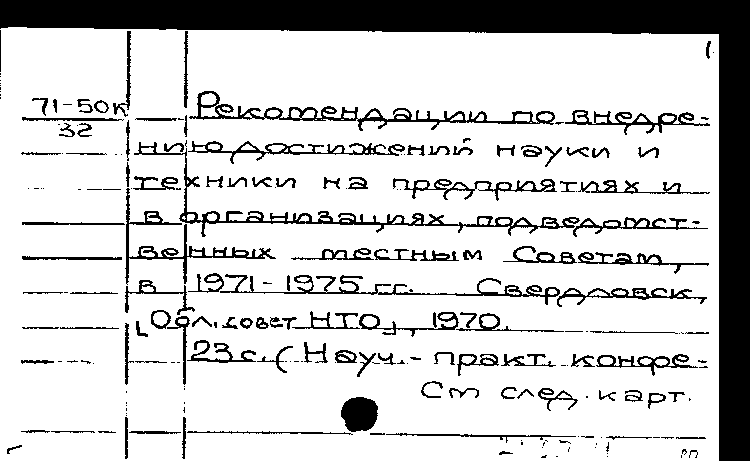 1
71-50к Рекомендации по внедре-
32
нию достижений науки и
техники на предприятиях и
в организациях, подведомст-
венных местным Советам,
в 1971-1975 гг. Свердловск,
[Обл. совет НТО], 1970.
23 с. (Науч.- практ. конфе-
См след. карт.